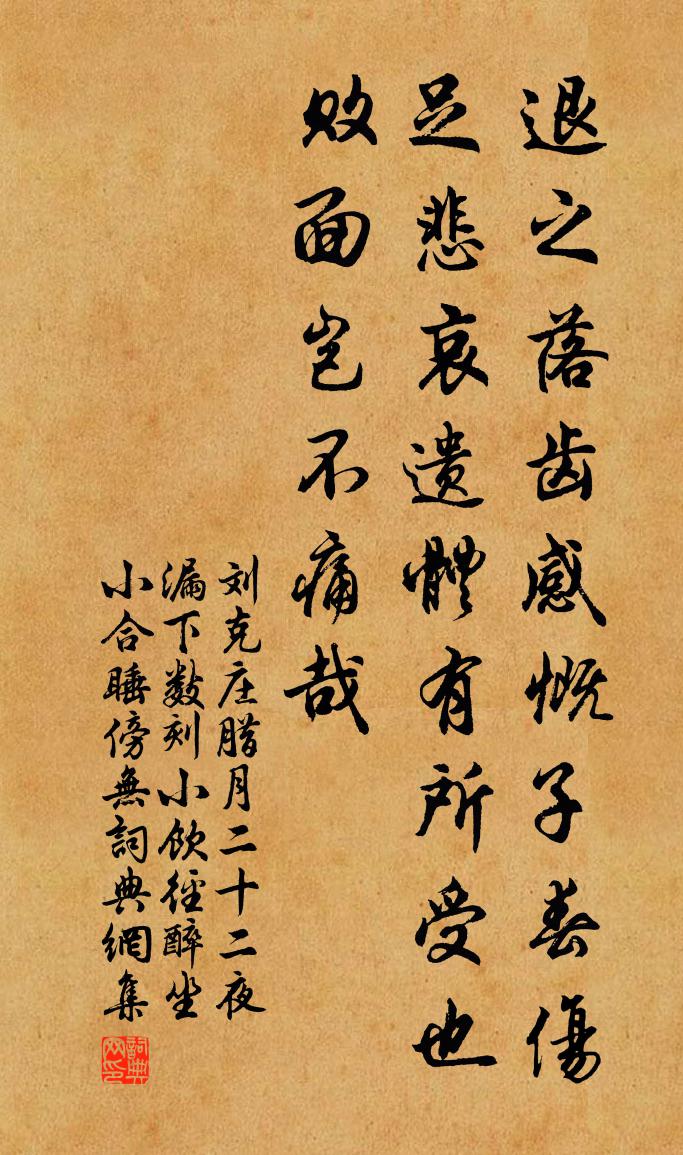 退之落齿感慨子春傷
足悲哀遗體有所受也
败面岂不痛哉
刘克庄腊月二十二夜
漏下数刻小飲徑醉坐
小合睡傍無詞典網集
詞典网印